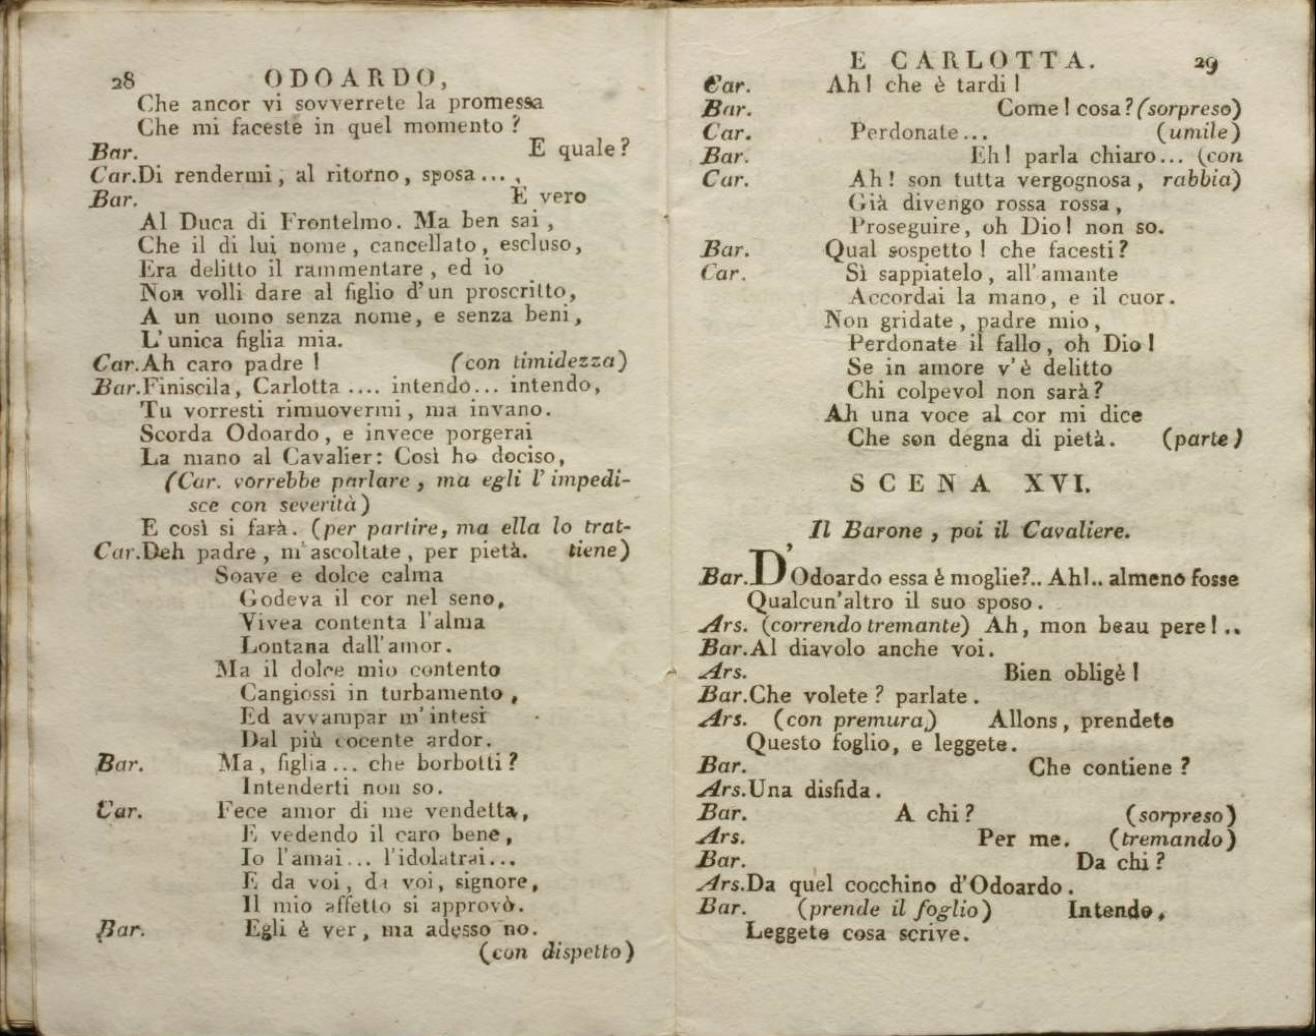 28 ODOARDO,
Che ancor vi sovverrete la promessa
Che mi faceste in quel momento ?
Bar. E quale ?
Car. Di rendermi, al ritorno, sposa ... ,
Bar. E vero
Al Duca di Frontelmo. Ma ben sai,
Che il di lui nome, cancellato, escluso,
Era delitto il rammentare, ed io
Non volli dare al figlio d'un proscritto,
A un uomo senza nome, e senza beni,
L'unica figlia mia.
Car. Ah caro padre ! (con timidezza)
Bar. Finiscila, Carlotta .... intendo... intendo,
Tu vorresti rimuovermi, ma invano.
Scorda Odoardo, e invece porgerai
La mano al Cavalier: Così ho deciso,
(Car. vorrebbe parlare, ma egli l'impedi-
sce con severità)
E così si farà. (per partire, ma ella lo trat-
Car. Deh padre, m'ascoltate, per pietà. tiene)
Soave e dolce calma
Godeva il cor nel seno,
Vivea contenta l'alma
Lontana dall'amor.
Ma il dolce mio contento
Cangiossi in turbamento,
Ed avvampar m'intesi
Dal più cocente ardor.
Bar. Ma, figlia ... che borbotti ?
Intenderti non so.
Car. Fece amor di me vendetta,
E vedendo il caro bene,
Io l'amai... l'idolatrai...
E da voi, da voi, signore,
Il mio affetto si approvò.
Bar. Egli è ver, ma adesso no.
(con dispetto)
E CARLOTTA. 29
Car. Ah ! che è tardi !
Bar. Come ! cosa ? (sorpreso)
Car. Perdonate ... (umile)
Bar. Eh ! parla chiaro ... (con
Car. Ah ! son tutta vergognosa, rabbia)
Già divengo rossa rossa,
Proseguire, oh Dio ! non so.
Bar. Qual sospetto ! che facesti ?
Car. Sì sappiatelo, all'amante
Accordai la mano, e il cuor.
Non gridate, padre mio,
Perdonate il fallo, oh Dio !
Se in amore v'è delitto
Chi colpevol non sarà ?
Ah una voce al cor mi dice
Che son degna di pietà. (parte)
SCENA XVI.
Il Barone, poi il Cavaliere.
Bar. D'Odoardo essa è moglie?.. Ah!.. almeno fosse
Qualcun'altro il suo sposo.
Ars. (correndo tremante) Ah, mon beau pere!..
Bar. Al diavolo anche voi.
Ars. Bien obligè !
Bar. Che volete ? parlate.
Ars. (con premura) Allons, prendete
Questo foglio, e leggete.
Bar. Che contiene ?
Ars. Una disfida.
Bar. A chi ? (sorpreso)
Ars. Per me. (tremando)
Bar. Da chi ?
Ars. Da quel cocchino d'Odoardo.
Bar. (prende il foglio) Intendo,
Leggete cosa scrive.